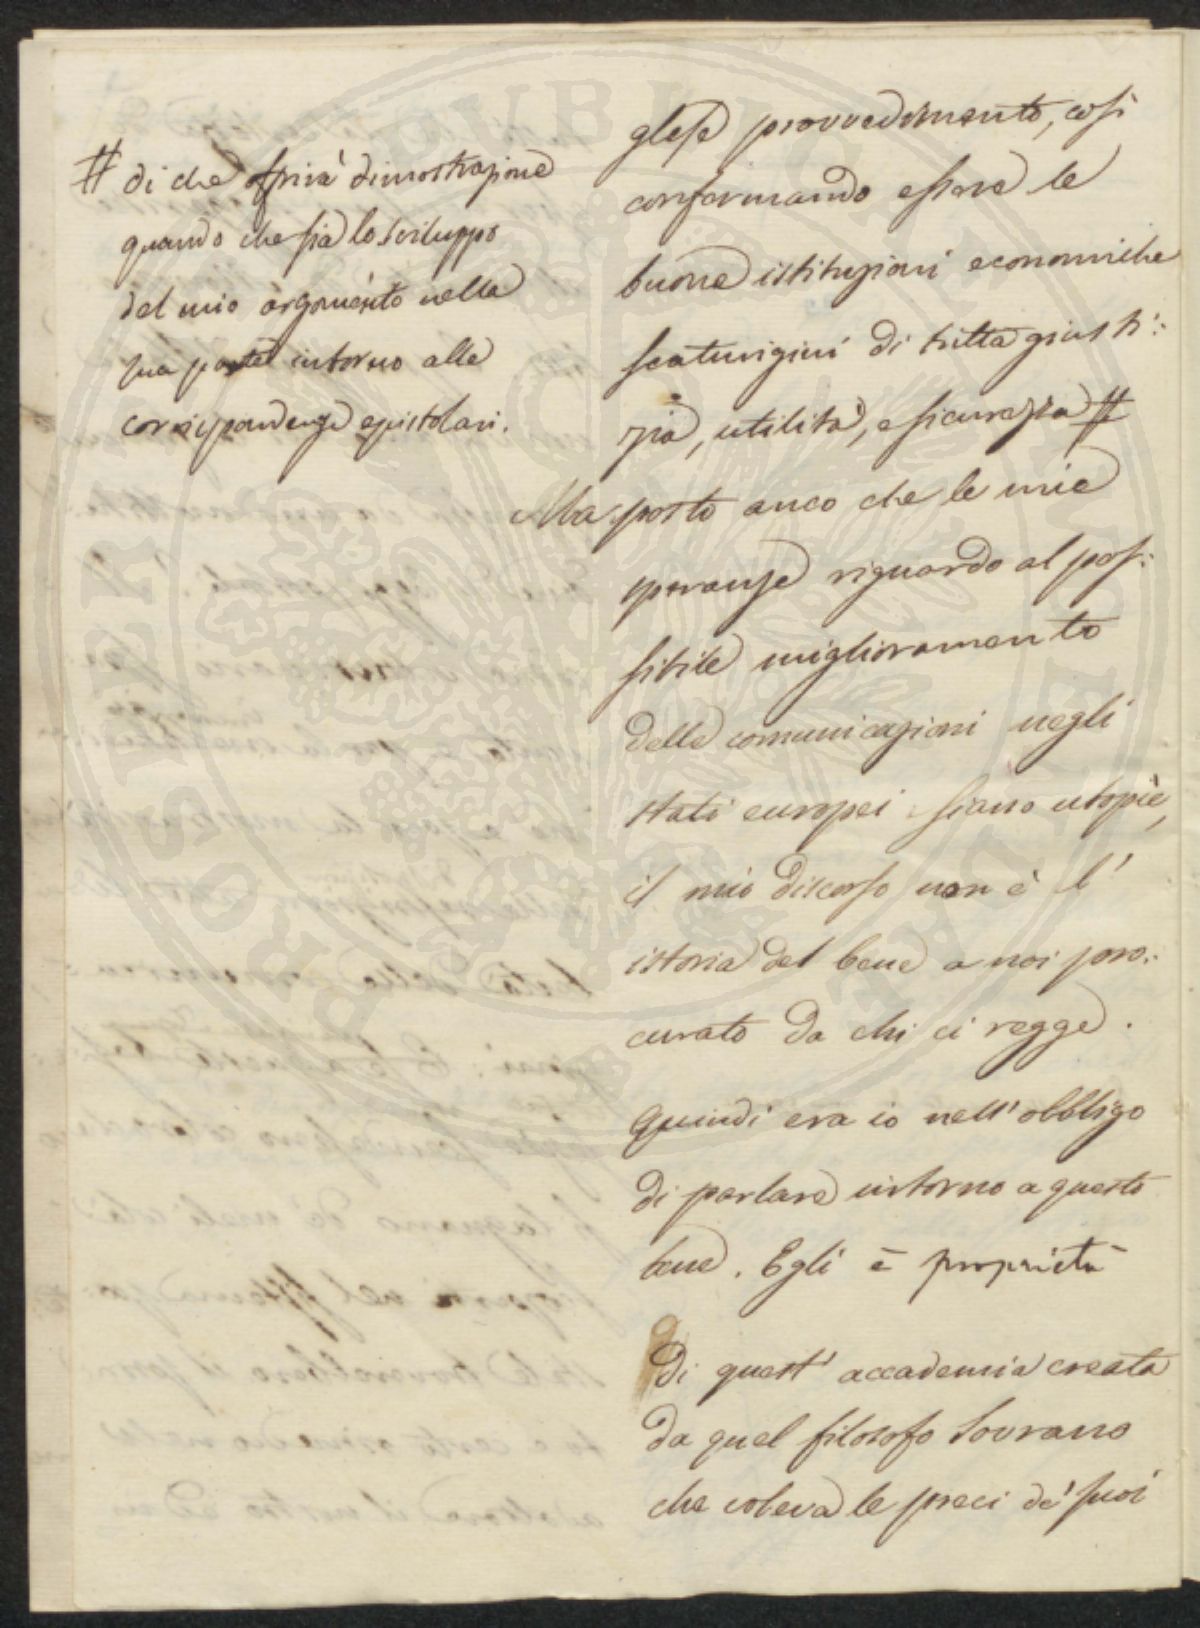 # di che offrirà dimostrazione
quando che sia lo sviluppo
del mio argomento nella
sua parte intorno alle
corrispondenze epistolari.
glese provvedimento, così
confermando essere le
buone istituzioni economiche
scaturigini di tutta giusti:
zia, utilità, e sicurezza #
Ma posto anco che le mie
speranze riguardo al pos:
sibile miglioramento
delle comunicazioni negli
stati europei siano utopie,
il mio discorso non è l'
istoria del bene a noi pro:
curato da chi ci regge.
Quindi era io nell'obbligo
di parlare intorno a questo
bene. Egli è proprietà
di quest' accademia creata
da quel filosofo Sovrano
che voleva le preci de' suoi